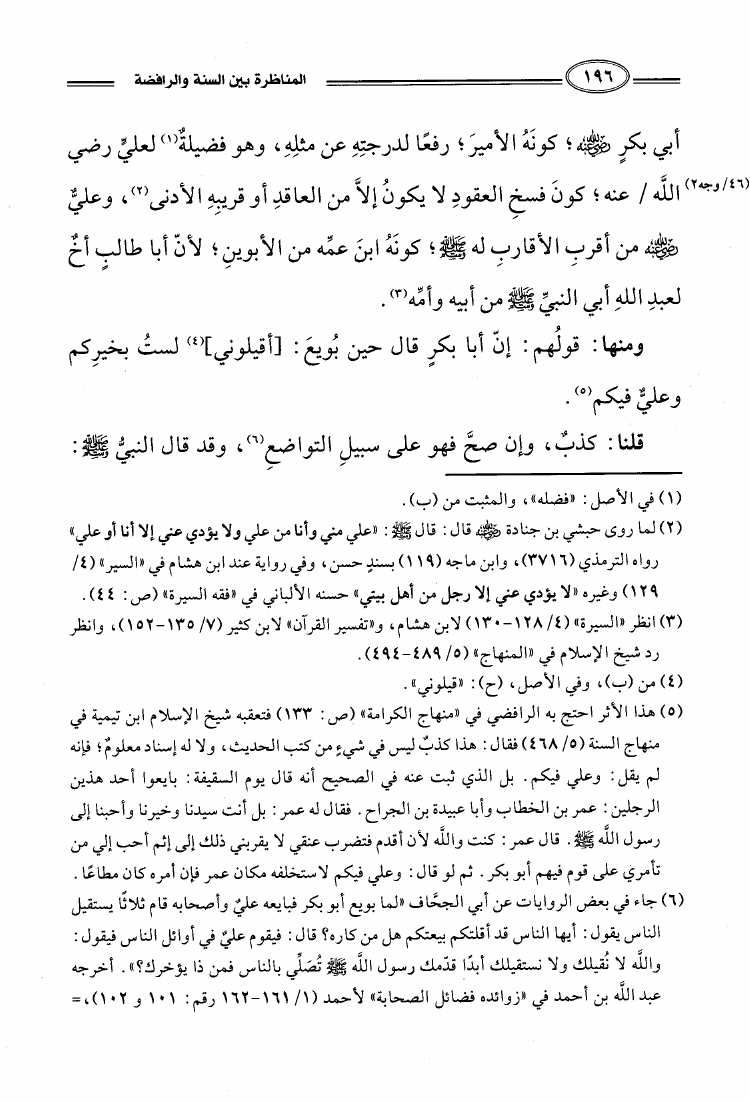 ١٩٦ المناظرة بين السنة والرافضة
أبي بكرٍ ﵁؛ كونَهُ الأميرَ؛ رفعًا لدرجتِهِ عن مثلِهِ، وهو فضيلةٌ(١) لعليٍّ رضي
(٤٦/وجه٢) اللَّه / عنه؛ كونَ فسخِ العقودِ لا يكونُ إلاَّ من العاقدِ أو قريبِهِ الأدنى(٢)، وعليٌّ
﵁ من أقربِ الأقاربِ له ﷺ؛ كونَهُ ابنَ عمِّه من الأبوينِ؛ لأنّ أبا طالبٍ أخٌ
لعبدِ اللهِ أبي النبيِّ ﷺ من أبيه وأمِّه(٣).
ومنها: قولُهم: إنّ أبا بكرٍ قال حين بُويعَ: [أقيلوني](٤) لستُ بخيرِكم
وعليٌّ فيكم(٥).
قلنا: كذبٌ، وإن صحَّ فهو على سبيلِ التواضعِ(٦)، وقد قال النبيُّ ﷺ:
(١) في الأصل: «فضله»، والمثبت من (ب).
(٢) لما روى حبشي بن جنادة ﵁ قال: قال ﷺ: «علي مني وأنا من علي ولا يؤدي عني إلا أنا أو علي»
رواه الترمذي (٣٧١٦)، وابن ماجه (١١٩) بسندٍ حسن، وفي رواية عند ابن هشام في «السير» (٤/
١٢٩) وغيره «لا يؤدي عني إلا رجل من أهل بيتي» حسنه الألباني في «فقه السيرة» (ص: ٤٤).
(٣) انظر «السيرة» (٤/ ١٢٨-١٣٠) لابن هشام، و«تفسير القرآن» لابن كثير (٧/ ١٣٥-١٥٢)، وانظر
رد شيخ الإسلام في «المنهاج» (٥/ ٤٨٩-٤٩٤).
(٤) من (ب)، وفي الأصل، (ح): «قيلوني».
(٥) هذا الأثر احتج به الرافضي في «منهاج الكرامة» (ص: ١٣٣) فتعقبه شيخ الإسلام ابن تيمية في
منهاج السنة (٥/ ٤٦٨) فقال: هذا كذبٌ ليس في شيءٍ من كتب الحديث، ولا له إسناد معلومٌ؛ فإنه
لم يقل: وعلي فيكم. بل الذي ثبت عنه في الصحيح أنه قال يوم السقيفة: بايعوا أحد هذين
الرجلين: عمر بن الخطاب وأبا عبيدة بن الجراح. فقال له عمر: بل أنت سيدنا وخيرنا وأحبنا إلى
رسول اللَّه ﷺ. قال عمر: كنت واللَّه لأن أقدم فتضرب عنقي لا يقربني ذلك إلى إثم أحب إلي من
تأمري على قوم فيهم أبو بكر. ثم لو قال: وعلي فيكم لاستخلفه مكان عمر فإن أمره كان مطاعًا.
(٦) جاء في بعض الروايات عن أبي الجحَّاف «لما بويع أبو بكر فبايعه عليٌ وأصحابه قام ثلاثًا يستقيل
الناس يقول: أيها الناس قد أقلتكم بيعتكم هل من كاره؟ قال: فيقوم عليٌ في أوائل الناس فيقول:
واللَّه لا نُقيلك ولا نستقيلك أبدًا قدّمك رسول اللَّه ﷺ تُصَلِّي بالناس فمن ذا يؤخرك؟». أخرجه
عبد اللَّه بن أحمد في «زوائده فضائل الصحابة» لأحمد (١/ ١٦١-١٦٢ رقم: ١٠١ و ١٠٢)، =